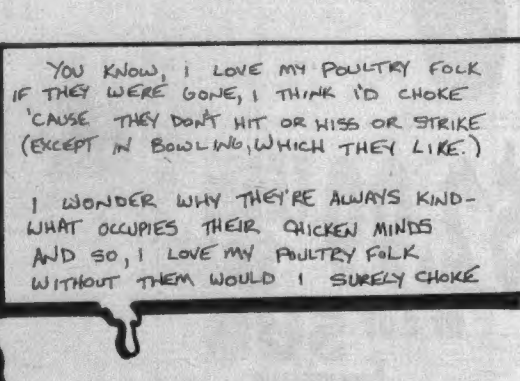 YOU KNOW, I LOVE MY POULTRY FOLK
IF THEY WERE GONE, I THINK I'D CHOKE
'CAUSE THEY DON'T HIT OR HISS OR STRIKE
(EXCEPT IN BOWLING, WHICH THEY LIKE.)
I WONDER WHY THEY'RE ALWAYS KIND-
WHAT OCCUPIES THEIR CHICKEN MINDS
AND SO, I LOVE MY POULTRY FOLK
WITHOUT THEM WOULD I SURELY CHOKE